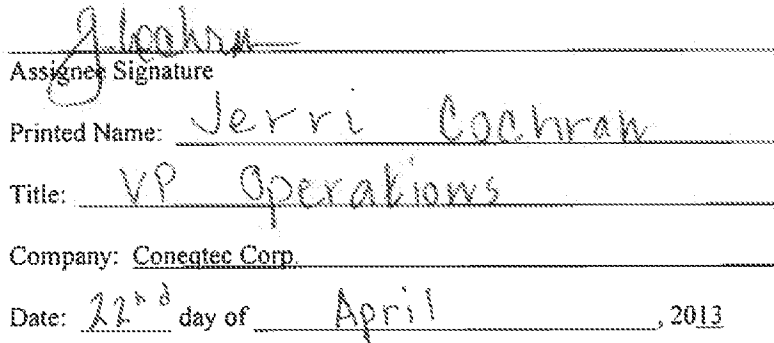 Assignee Signature
Printed Name: Jerri Cochran
Title: VP Operations
Company: Coneqtec Corp.
Date: 22nd day of April, 2013